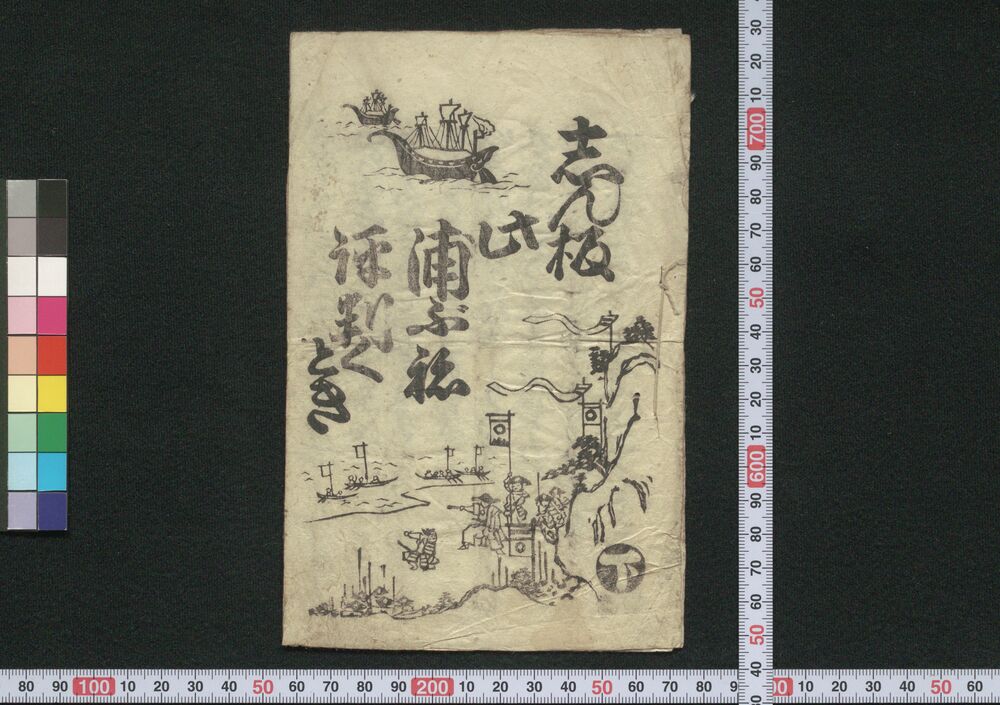 志ん板
此
浦ぶ祢
評判く
とき
下
30
20
10
700
90
80
70
60
50
40
30
20
10
600
90
80
70
60
50
40
80 90 100 10 20 30 40 50 60 70 80 90 200 10 20 30 40 50 60 70 80 9 00 10 20 30 40 50 60